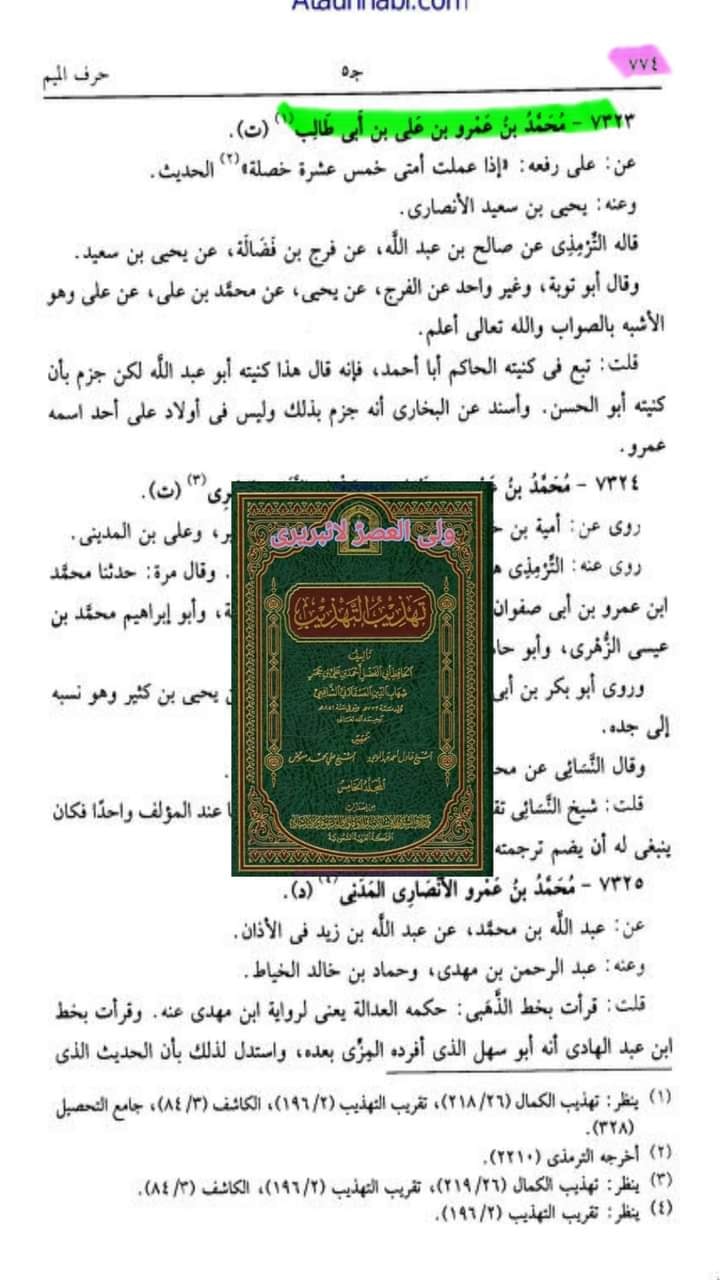 Ataunnabi.com
٧٧٤ ج٥ حرف الميم
٧٣٢٣ - مُحَمَّدُ بنُ عَمْرو بن عَلى بن أَبى طَالِب (١) (ت).
عن: على رفعه: «إذا عملت أمتى خمس عشرة خصلة»(٢) الحديث.
وعنه: يحيى بن سعيد الأنصارى.
قاله التِّرْمِذِى عن صالح بن عبد اللَّه، عن فرج بن فَضَالَة، عن يحيى بن سعيد.
وقال أبو توبة، وغير واحد عن الفرج، عن يحيى، عن محمَّد بن على، عن على وهو
الأشبه بالصواب والله تعالى أعلم.
قلت: تبع فى كنيته الحاكم أبا أحمد، فإنه قال هذا كنيته أبو عبد اللَّه لكن جزم بأن
كنيته أبو الحسن. وأسند عن البخارى أنه جزم بذلك وليس فى أولاد على أحد اسمه
عمرو.
٧٣٢٤ - مُحَمَّدُ بنُ (٣) (ت).
روى عن: أمية بن وعلى بن المدينى.
روى عنه: التِّرْمِذِى . وقال مرة: حدثنا محمَّد
ابن عمرو بن أبى صفوان وأبو إبراهيم محمَّد بن
عيسى الزُّهْرى، وأبو
وروى أبو بكر بن أبى يحيى بن كثير وهو نسبه
إلى جده.
وقال النَّسَائى عن
قلت: شيخ النَّسَائى عند المؤلف واحدًا فكان
ينبغى له أن يضم ترجمته
ولى العصر لائبريرى
تهذيب التهذيب
تأليف
الحافظ أبي الفضل أحمد بن علي بن حجر
شهاب الدين العسقلاني الشافعي
تحقيق
الشيخ عادل أحمد عبد الموجود الشيخ علي محمد معوض
المجلد الخامس
٧٣٢٥ - مُحَمَّدُ بنُ عَمْرو الأَنْصَارِى المَدَنِى (٤) (د).
عن: عبد اللَّه بن محمَّد، عن عبد اللَّه بن زيد فى الأذان.
وعنه: عبد الرحمن بن مهدى، وحماد بن خالد الخياط.
قلت: قرأت بخط الذَّهَبى: حكمه العدالة يعنى لرواية ابن مهدى عنه. وقرأت بخط
ابن عبد الهادى أنه أبو سهل الذى أفرده المِزِّى بعده، واستدل لذلك بأن الحديث الذى
(١) ينظر: تهذيب الكمال (٢١٨/٢٦)، تقريب التهذيب (١٩٦/٢)، الكاشف (٨٤/٣)، جامع التحصيل
(٣٢٨).
(٢) أخرجه الترمذى (٢٢١٠).
(٣) ينظر: تهذيب الكمال (٢١٩/٢٦)، تقريب التهذيب (١٩٦/٢)، الكاشف (٨٤/٣).
(٤) ينظر: تقريب التهذيب (١٩٦/٢).